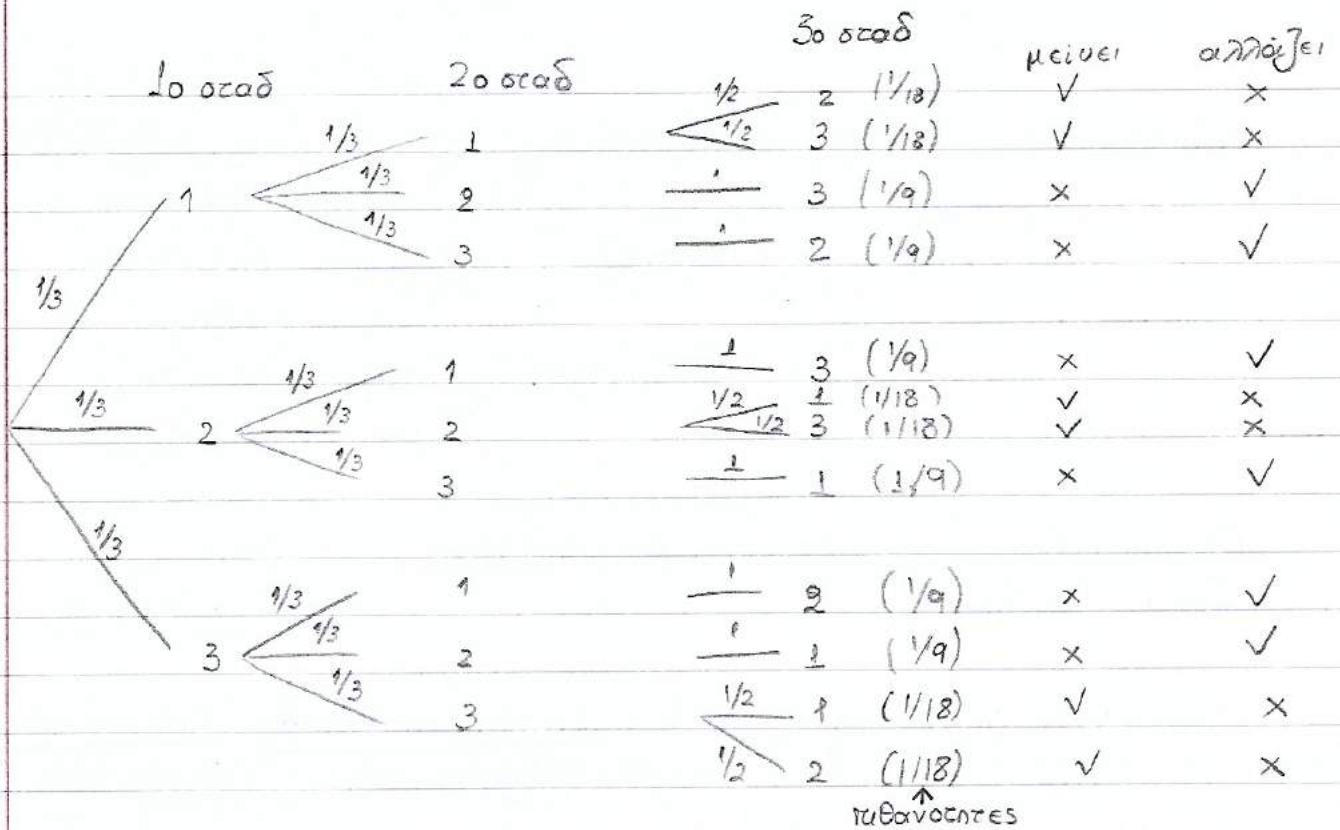 3ο σταδ
1ο σταδ 2ο σταδ μείνει αλλάζει
1/2 2 (1/18) ✓ ×
1/3 1 1/2 3 (1/18) ✓ ×
1 1/3 2 1 3 (1/9) × ✓
1/3 3 1 2 (1/9) × ✓
1/3
1/3 1 1 3 (1/9) × ✓
1/2 1 (1/18) ✓ ×
1/3 2 1/3 2 1/2 3 (1/18) ✓ ×
1/3 3 1 1 (1/9) × ✓
1/3
1/3 1 1 2 (1/9) × ✓
3 1/3 2 1 1 (1/9) × ✓
1/3 3 1/2 1 (1/18) ✓ ×
1/2 2 (1/18) ✓ ×
↑
πιθανότητες